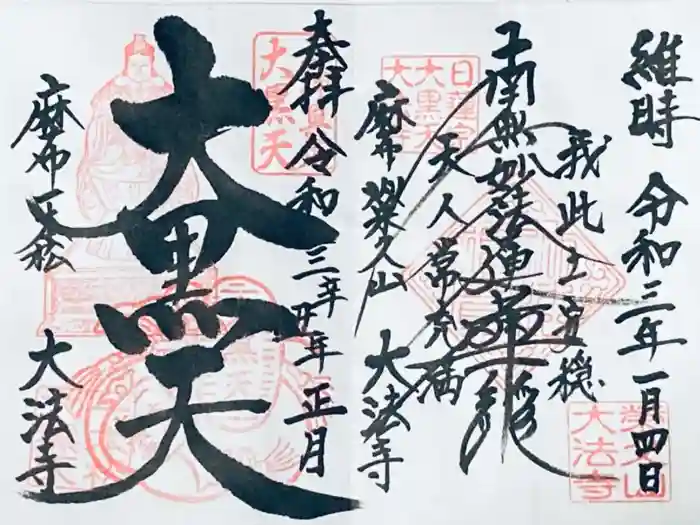 維時 令和三年一月四日
我此土安穏
南無妙法蓮華経
天人常充満
麻布 栄久山 大法寺
奉拝 令和三年 丑年 正月
大黒天
麻布 一本松 大法寺
大黒天
栄久山
大法寺